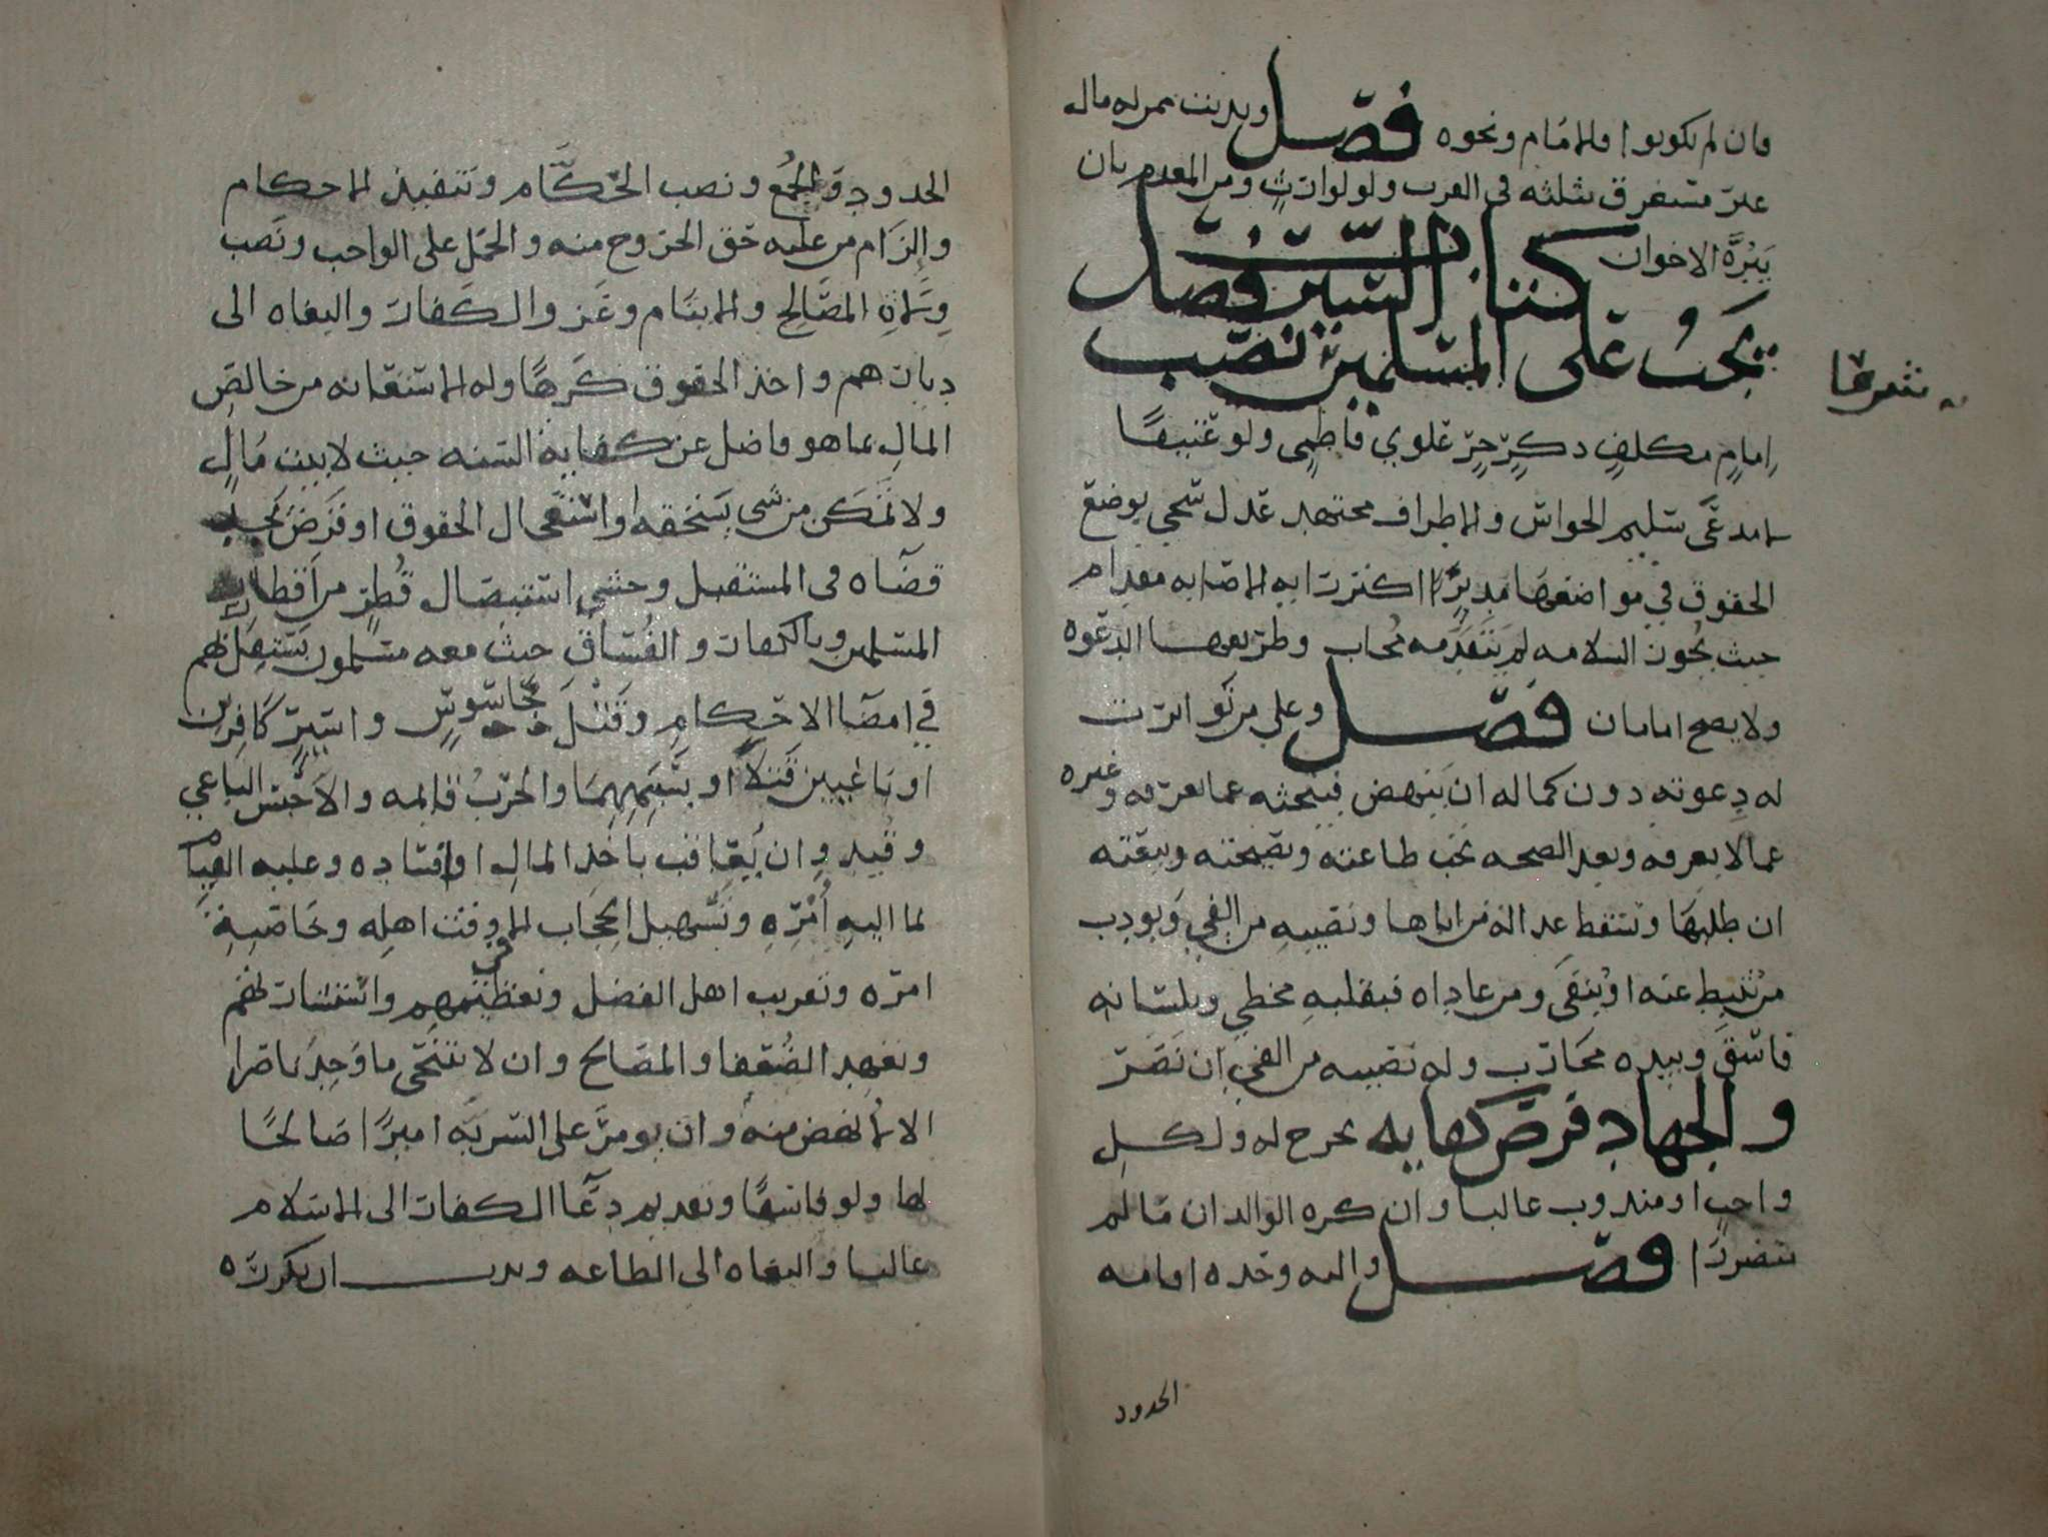 فان لم يكونوا فالامام ونحوه فصل ويدبت ممن له مال
غير مستغرق بثلثه في القرب ولو لوارثٍ ومن المعدم بان
يَبُرَّه الاخوان كتاب السير فصل
يجب على المسلمين نصب
شرعًا
إمامٍ مكلفٍ ذكرٍ حرٍّ علوي فاطمي ولو عتيقًا
لا مدعًى سليم الحواس والاطراف مجتهد عدل سخي يوضع
الحقوق في مواضعها مدبرٍ اكثر رايه الاصابه مقدام
حيث يجوز السلامه لم يتقدمه مُجاب وطريقها الدعوه
ولا يصح امامان فصل وعلى من تواترت
له دعوته دون كماله ان ينهض فيبحثه عما يعرفه وغيره
عما لا يعرفه وبعد الصحه تجب طاعته ونصيحته وبيعته
ان طلبها وتسقط عدالة من اباها ونصيبه من الفي ويودب
من ثبط عنه او ينفى ومن عاداه فبقلبه مخطي وبلسانه
فاسق وبيده محارب وله نصيبه من الفي ان نصر
والجهاد فرض كفايه يخرج له ولكل
واجب او مندوب غالبا وان كره الوالدان ما لم
يتضررا فصل واليه وحده اقامه
الحدود
الحدود والجُمَع ونصب الحكّام وتنفيذ الاحكام
والزام من عليه حق الخروج منه والحمل على الواجب ونصب
وِلاةِ المصالح والايتام وغزو الكفار والبغاه الى
ديارهم واخذ الحقوق كَرهًا وله الاستعانه من خالص
المال بما هو فاضل عن كفايه السنه حيث لا بيت مالٍ
ولا تمكن من شي يستحقه او استعجال الحقوق او قرض يجد
قضآه في المستقبل وخشي استيصال قُطرٍ من اقطار
المسلمين وبالكفار والفُسّاق حيث معه مسلمون يستقل بهم
في امضآ الاحكام وقتل جاسوسٍ واسيرٍ كافرين
او باغيين قتلا او بسببهما والحرب قائمه والا حبس الباغي
وقُيد وان يُعاقب باخذ المال او افساده وعليه القيام
بما اليه أمرُه وتسهيل الحجاب الا وقت اهله وخاصه
امره وتقريب اهل الفضل وتعظيمهم واستشارتهم
وتعهد الضعفا والمصالح وان لا يتنحى ما وجد ناصرا
الا لانهض منه وان يومر على السريه اميرًا صالحًا
لها ولو فاسقًا وتقديم دعآ الكفار الى الاسلام
غالبا والبغاه الى الطاعه وندب ان يكرره